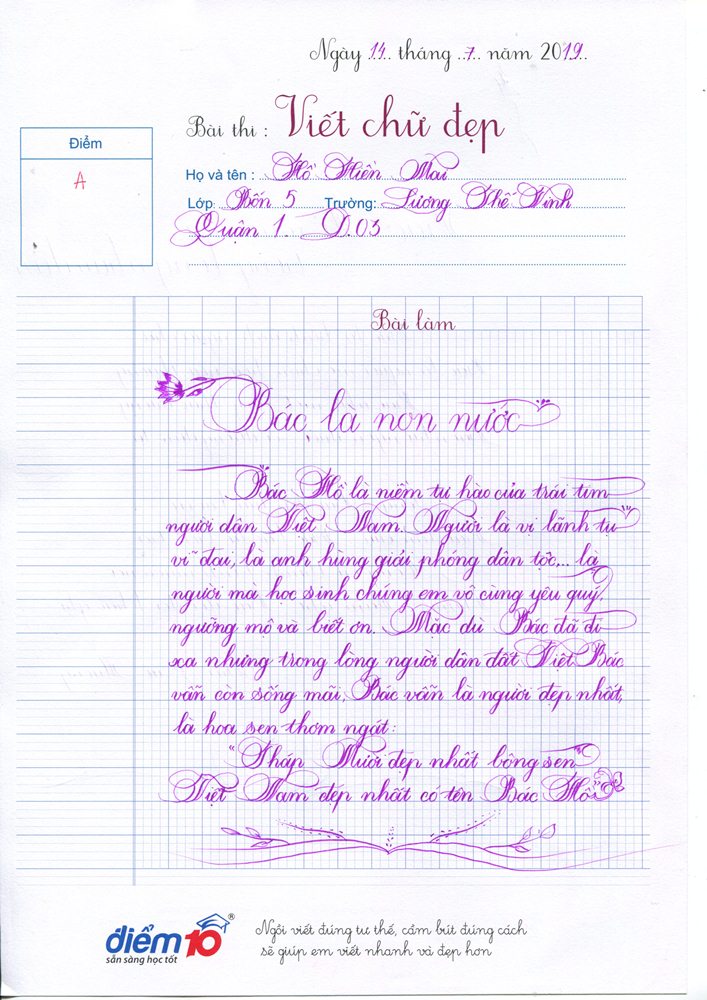 Ngày 14 tháng 7 năm 2019
Bài thi : Viết chữ đẹp
Điểm
A
Họ và tên : Hồ Hiền Mai
Lớp: Bốn 5 Trường: Lương Thế Vinh
Quận 1. D.03
Bài làm
Bác là non nước
Bác Hồ là niềm tự hào của trái tim
người dân Việt Nam. Người là vị lãnh tụ
vĩ đại, là anh hùng giải phóng dân tộc... là
người mà học sinh chúng em vô cùng yêu quý,
ngưỡng mộ và biết ơn. Mặc dù Bác đã đi
xa nhưng trong lòng người dân đất Việt, Bác
vẫn còn sống mãi, Bác vẫn là người đẹp nhất,
là hoa sen thơm ngát:
"Tháp Mười đẹp nhất bông sen
Việt Nam đẹp nhất có tên Bác Hồ"
điểm 10 ®
sẵn sàng học tốt
Ngồi viết đúng tư thế, cầm bút đúng cách
sẽ giúp em viết nhanh và đẹp hơn